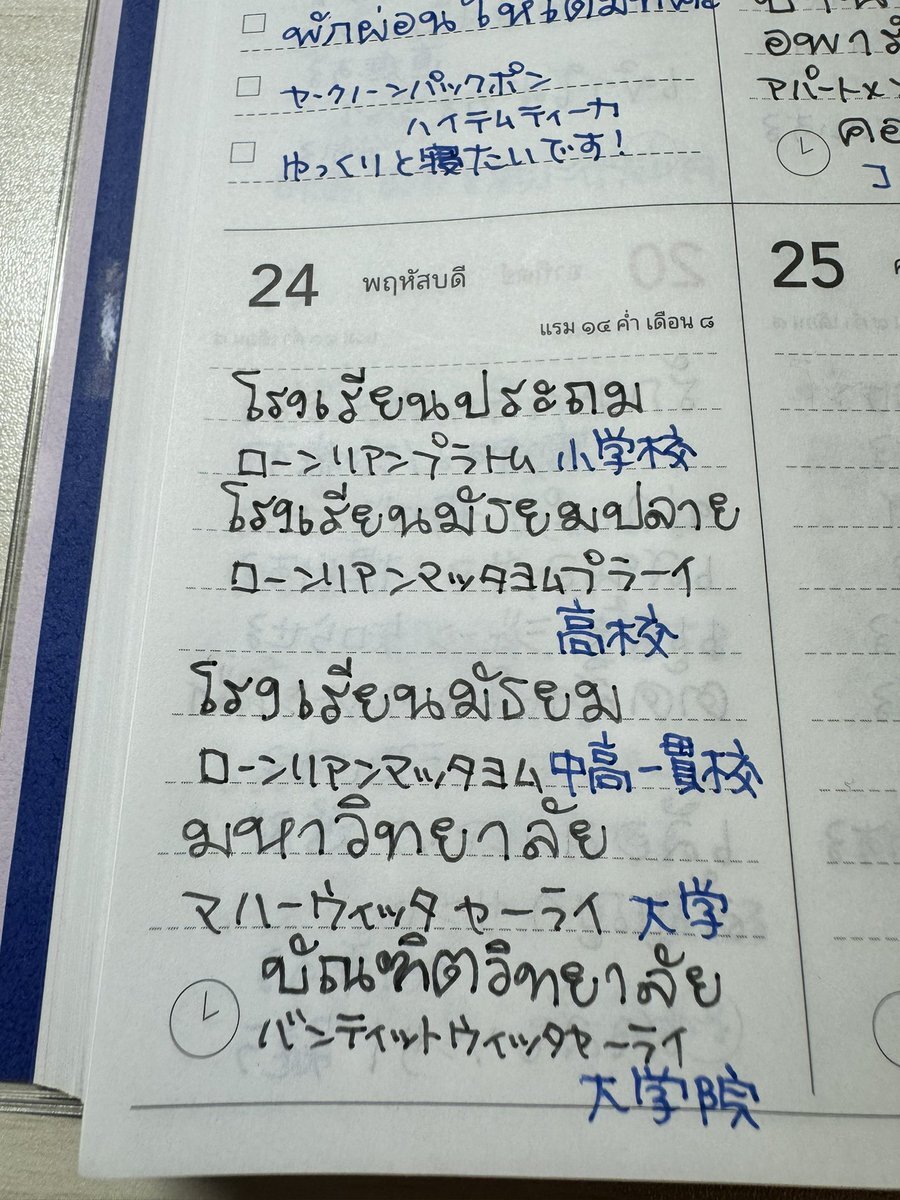 พักผ่อนให้เต็ม
ヤークノーンパックポン
ハイテムティーカ
ゆっくりと寝たいです!
อพาร์
アパートメン
คอ
コ
24 พฤหัสบดี
แรม ๑๔ ค่ำ เดือน ๘
โรงเรียนประถม
ローンリアンプラトム 小学校
โรงเรียนมัธยมปลาย
ローンリアンマッタヨムプラーイ
高校
โรงเรียนมัธยม
ローンリアンマッタヨム 中高一貫校
มหาวิทยาลัย
マハーウィッタヤーライ 大学
บัณฑิตวิทยาลัย
バンディットウィッタヤーライ
大学院
25